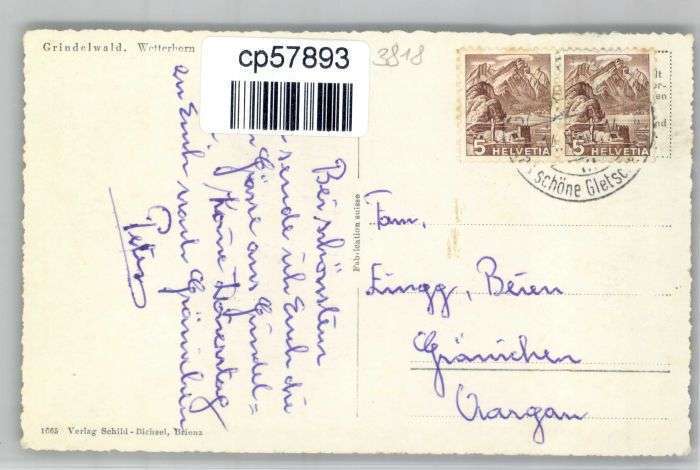 Grindelwald. Wetterhorn
cp57893
3818
5 HELVETIA
5 HELVETIA
schöne Gletsc
Bei schönstem
sende ich Euch die
Güsse aus Grindel=
Komme Donnerstag
Euch nach Gränichen
Peter
Fabrication suisse
Fam.
Lingg, Beien
Gränichen
Aargau
1665 Verlag Schild-Bichsel, Brienz